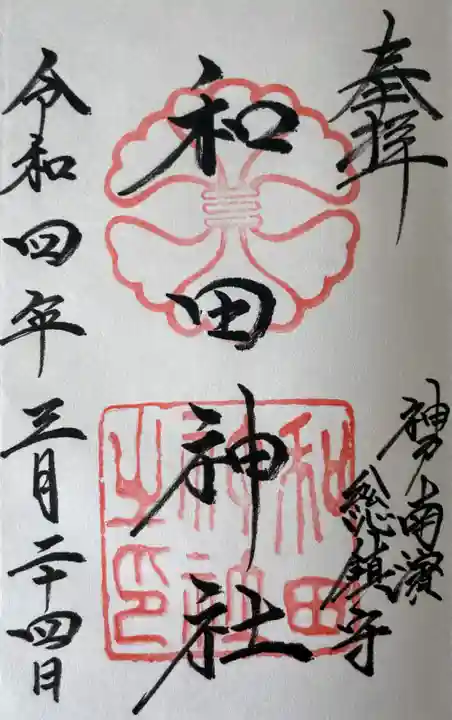 奉拝
神戸南濱
総鎮守
和田神社
和田
神社
之印
令和四年三月二十四日